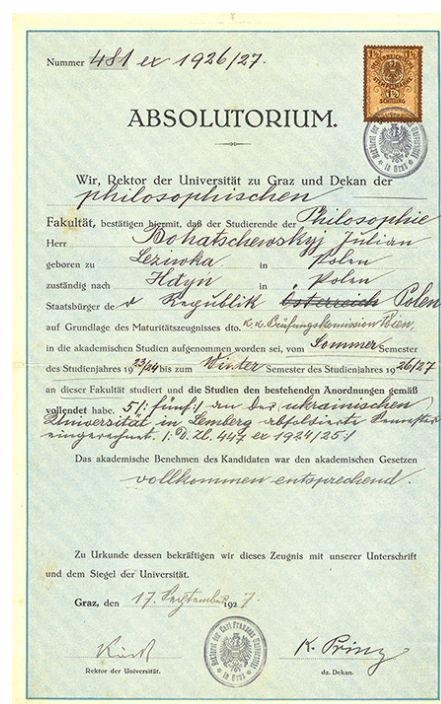 Nummer 481 ex 1926/27.
1½ 1½
ÖSTERREICHISCHE
STEMPELMARKE
1½
SCHILLING
ABSOLUTORIUM.
Wir, Rektor der Universität zu Graz und Dekan der
philosophischen
Fakultät, bestätigen hiermit, daß der Studierende der Philosophie
Herr Bohatschewskyj Julian
geboren zu Leziwka in Polen
zuständig nach Hdyn in Polen
Staatsbürger de r Republik Österreich Polen
auf Grundlage des Maturitätszeugnisses dto. k. k. Prüfungskommission Wien
in die akademischen Studien aufgenommen worden sei, vom Sommer Semester
des Studienjahres 1923/24 bis zum Winter Semester des Studienjahres 1926/27
an dieser Fakultät studiert und die Studien den bestehenden Anordnungen gemäß
vollendet habe. 5 /: fünf :/ an der ukrainischen
Universität in Lemberg absolvierte Semester
eingerechnet. /: D. Zl. 447 ex 1924/25 :/
Das akademische Benehmen des Kandidaten war den akademischen Gesetzen
vollkommen entsprechend.
Zu Urkunde dessen bekräftigen wir dieses Zeugnis mit unserer Unterschrift
und dem Siegel der Universität.
Graz, den 17. September 1927.
K. Prinz
Rektor der Universität. dz. Dekan.